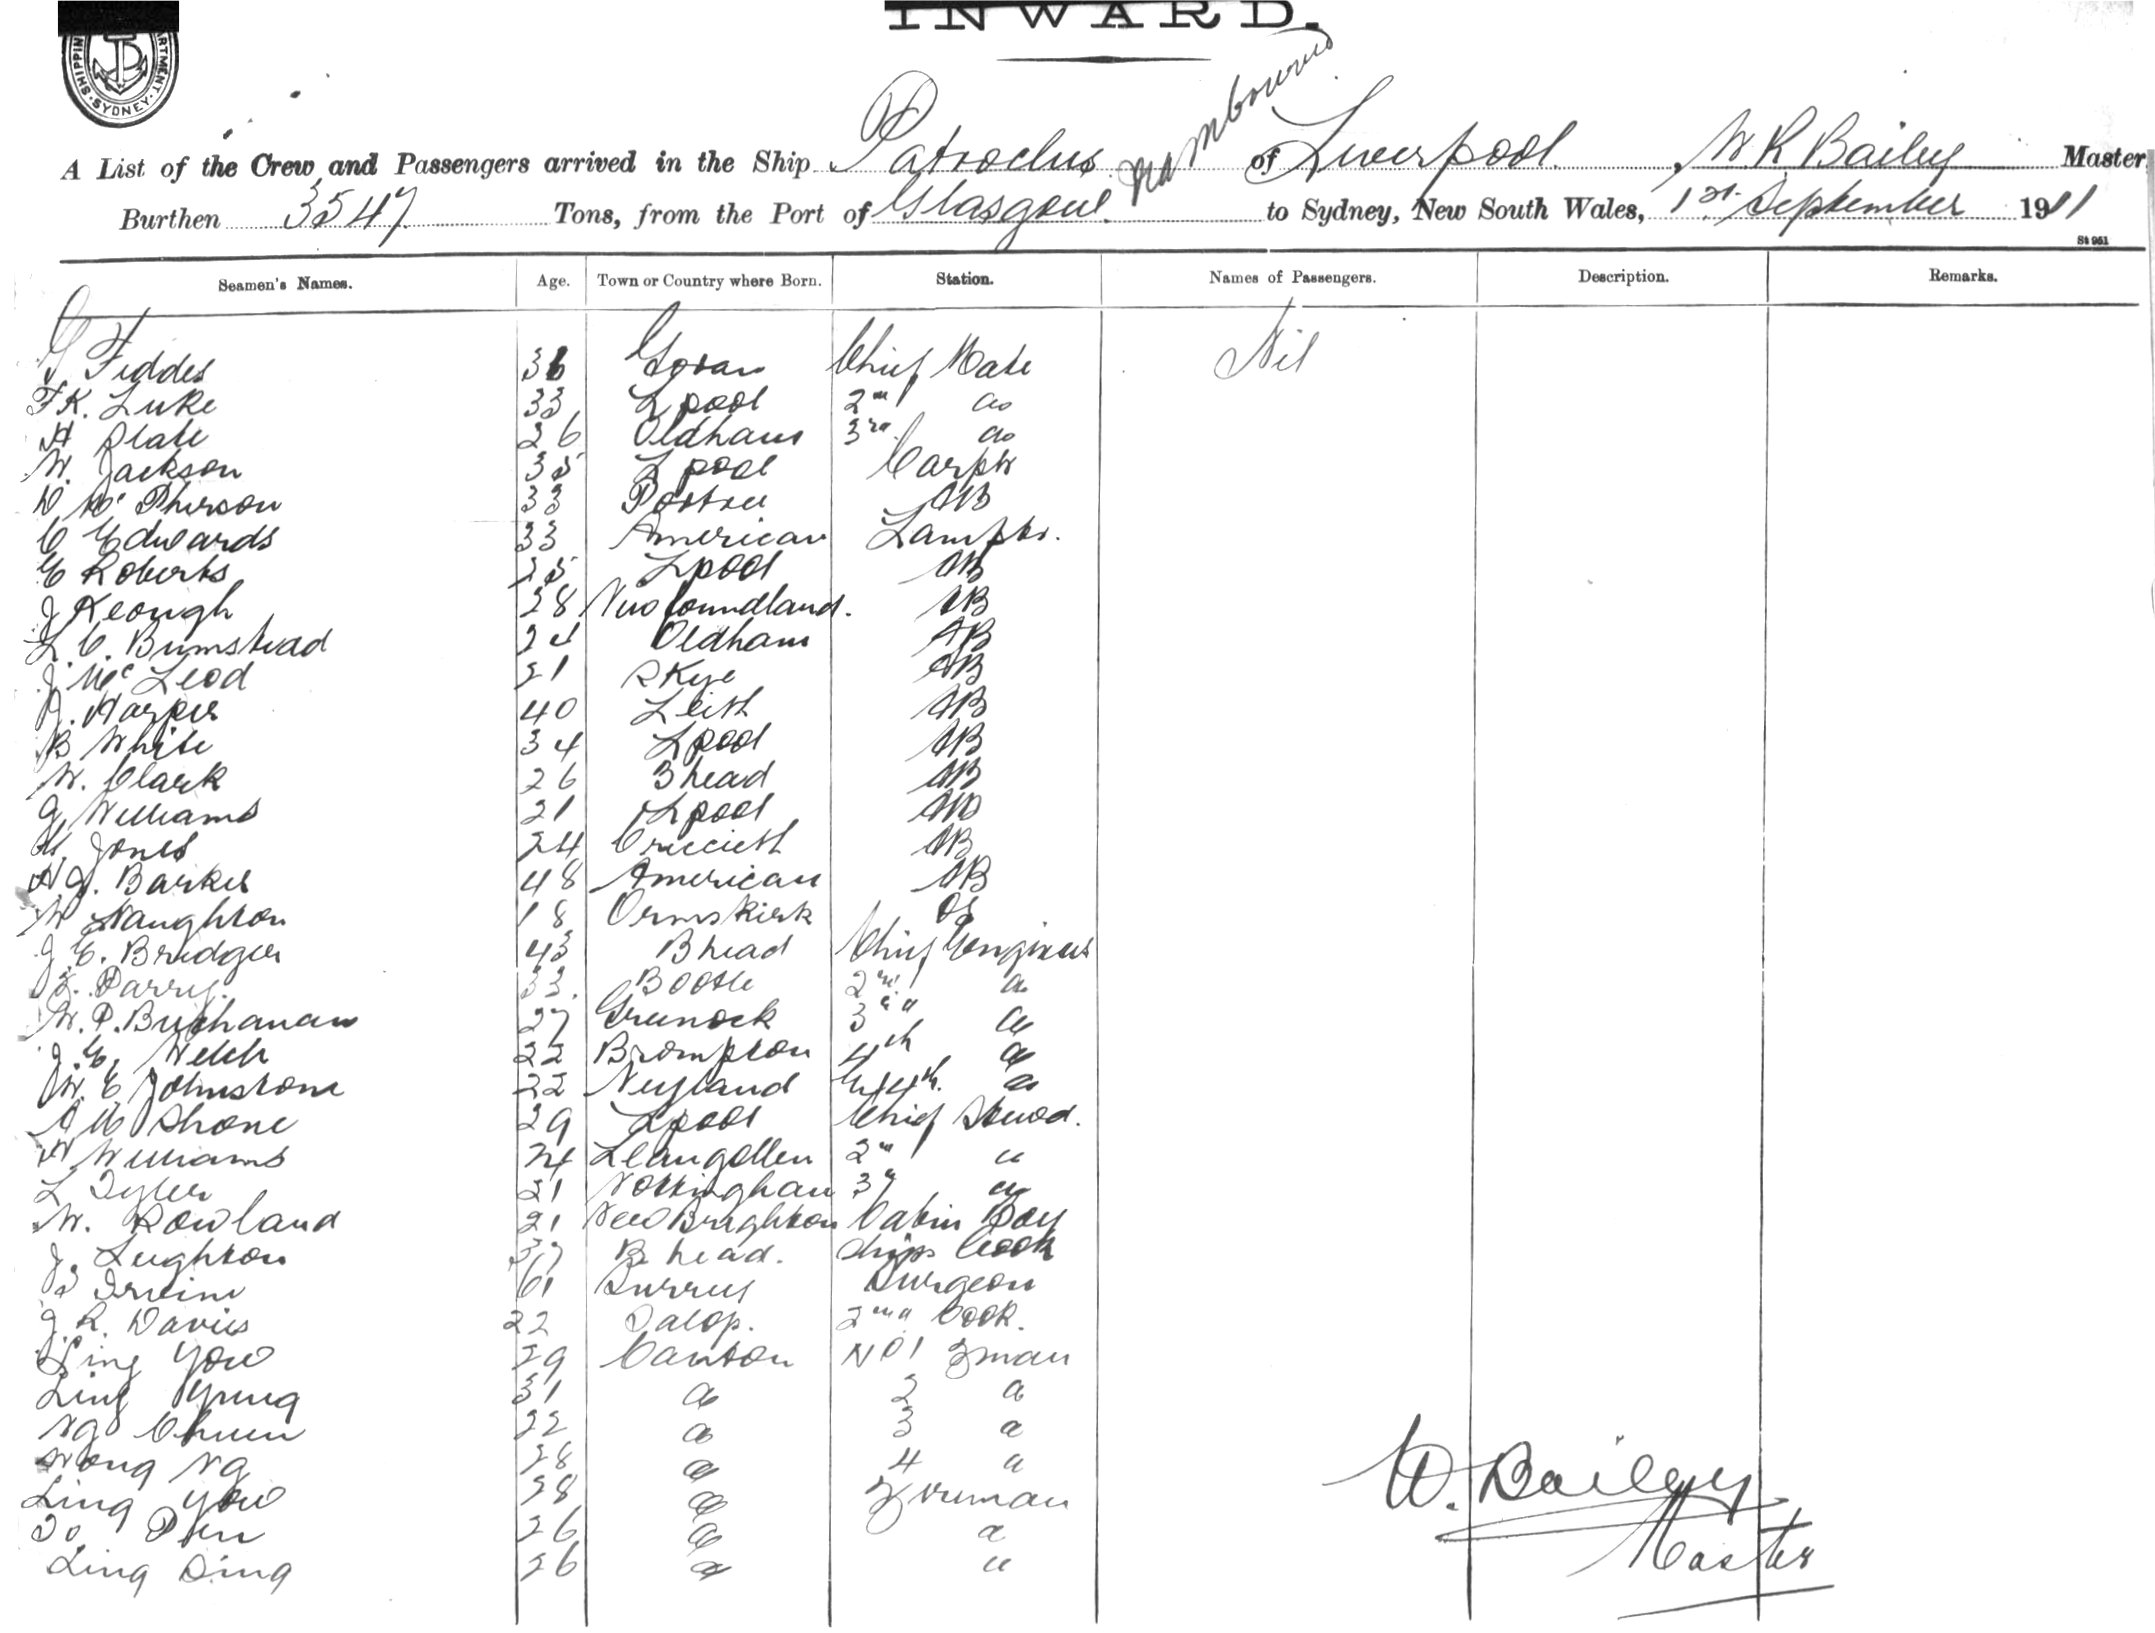 INWARD.
SHIPPING DEPARTMENT SYDNEY
A List of the Crew and Passengers arrived in the Ship Patroclus via Melbourne of Liverpool, W R Bailey Master
Burthen 3547 Tons, from the Port of Glasgow to Sydney, New South Wales, 1st September 1911
St 951
Seamen's Names. Age. Town or Country where Born. Station. Names of Passengers. Description. Remarks.
G Fiddes 36 Govan Chief Mate Nil
F K. Luke 33 Lpool 2nd do
H Slate 26 Oldham 3rd do
W. Jackson 35 Lpool Carptr
D McPherson 33 Portree AB
C Edwards 33 American Lamptr.
E Roberts 25 Lpool AB
J Keough 28 Newfoundland. AB
L. C. Bumstead 24 Oldham AB
J. McLeod 21 Skye AB
Harper 40 Leith AB
B White 34 Lpool AB
W. Clark 26 Bhead AB
G Williams 21 Lpool AB
Jones 24 Criccieth AB
H J. Barker 48 American AB
W Naughton 18 Ormskirk OS
J. E. Bridger 43 Bhead Chief Engineer
Parry. 33. Bootle 2nd do
W. P. Buchanan 27 Greenock 3rd do
J. E. Welch 22 Brompton 4th do
W. E Johnstone 22 Neyland Ex 4th. do
A M Shone 29 Lpool Chief Stewd.
H Williams 24 Llangollen 2nd "
L Tyler 21 Nottingham 3rd "
W. Rowland 21 New Brighton Cabin Boy
J. Leighton 37 B head. Ships Cook
Irvine 61 Surrey Surgeon
J. R. Davies 22 Salop. 2nd Cook.
Ling Yow 29 Canton No 1 Fman
Ling Yung 31 do 2 do
Ng Chuen 22 do 3 do
Wong Ng 28 do 4 do
Ling Yow 28 do Fireman
To Pen 26 do do
Ling Sing 26 do "
W. Bailey
Master